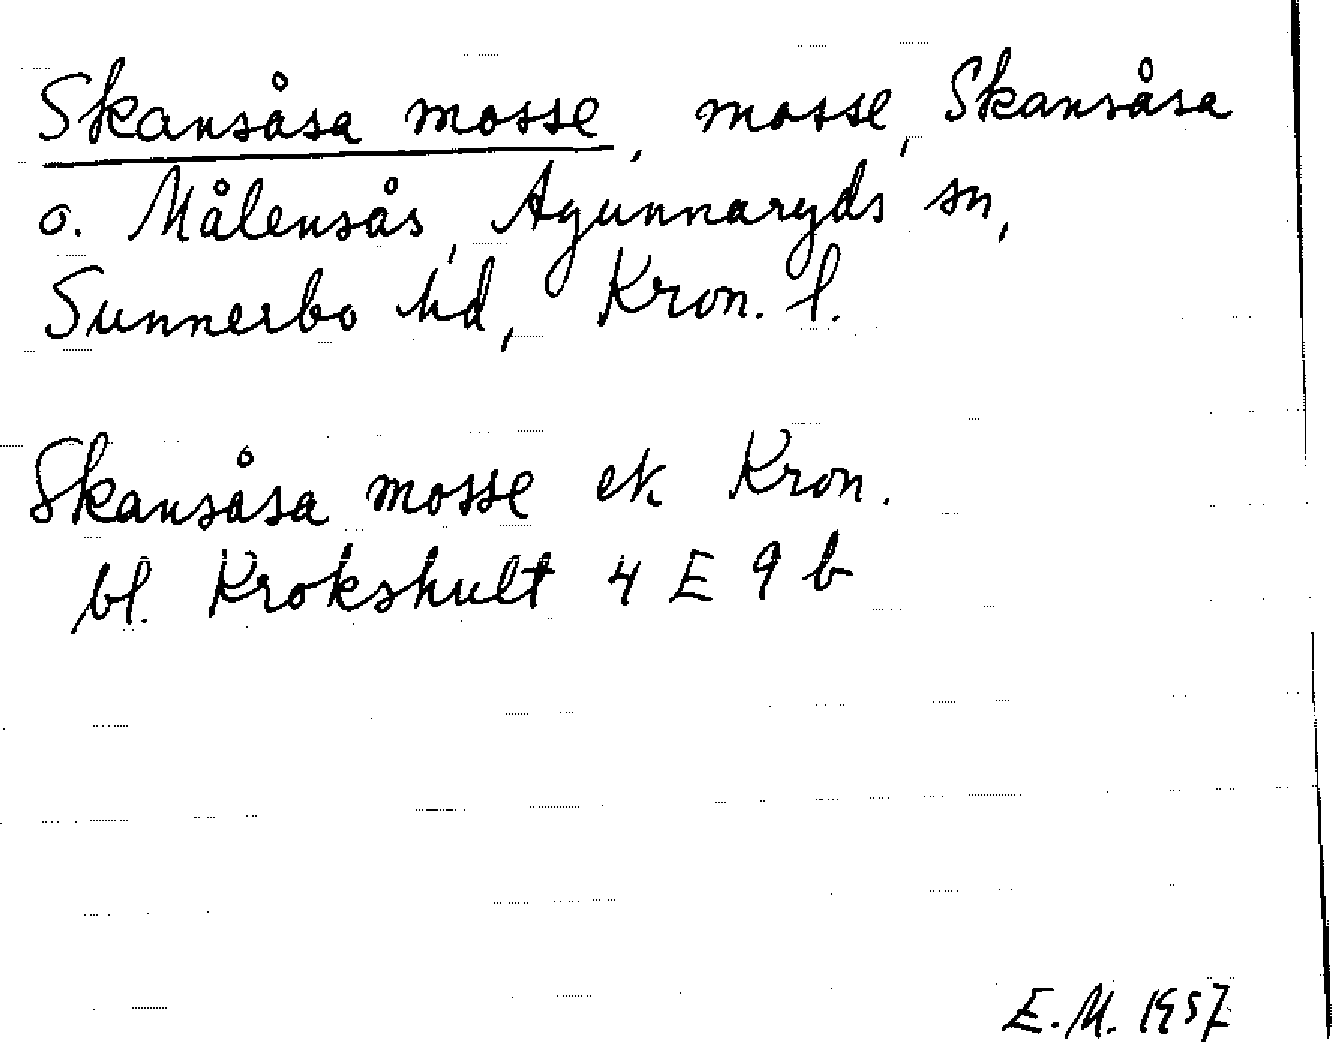 Skansåsa mosse, mosse, Skansåsa
o. Målensås, Agunnaryds sn,
Sunnerbo hd, Kron. l.
Skansåsa mosse ek Kron.
bl. Krokshult 4 E 9 b
E.M. 1957